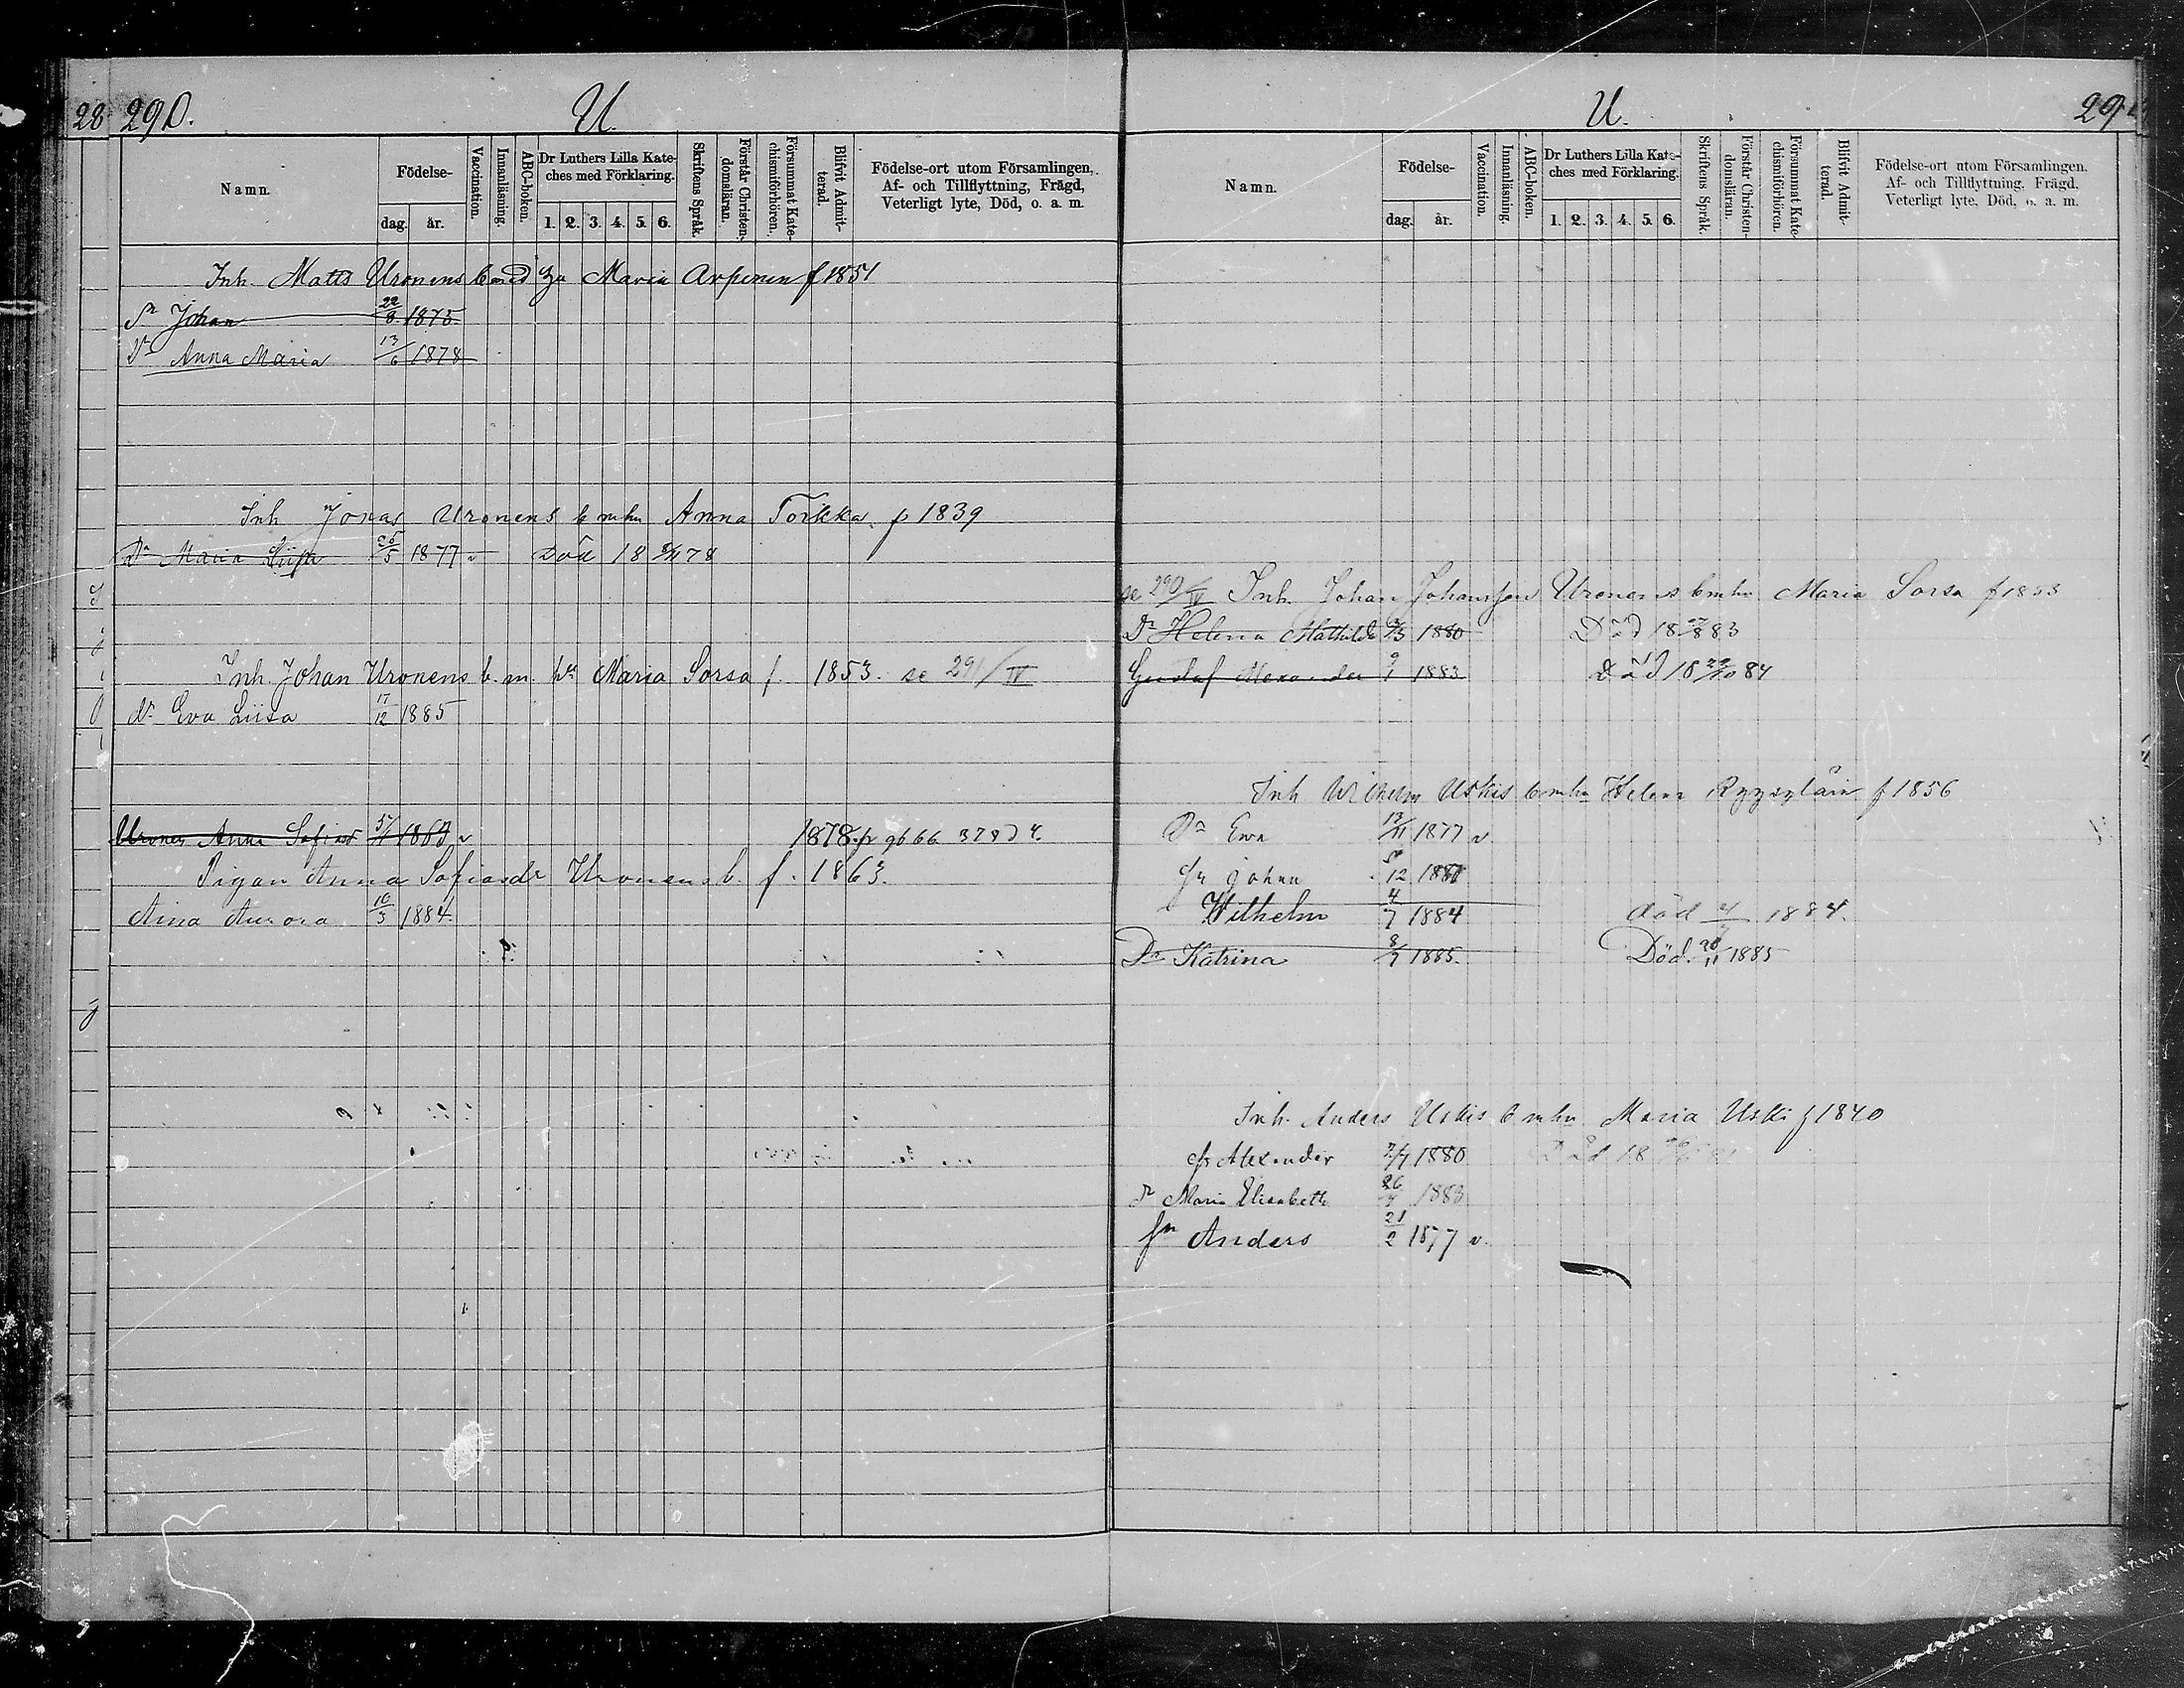 28 290. U.
Namn. Födelse- dag. år. Vaccination. Innanläsning. ABC-boken. Dr Luthers Lilla Kate-ches med Förklaring. 1. 2. 3. 4. 5. 6. Skriftens Språk. Förstår Christen-domsläran. Försummat Kate-chismiförhören. Blifvit Admit-terad. Födelse-ort utom Församlingen, Af- och Tillflyttning, Frägd, Veterligt lyte, Död, o. a. m.
Inh. Matts Uronens Maria Arponen f 1851
Sn Johan 22/8 1875
Dr Anna Maria 13/6 1878
Inh Jonas Uronens b mhu Anna Torkka f 1839
Dr Maria Liisa 25/5 1877 v Död 18 78
Inh. Johan Uronens b. m. Maria Sorsa f. 1853. se 291/IV
dr Eva Liisa 17/12 1885
Uronen Anna Sofiasdr 1863 v 1878
Pigan Anna Sofiasdr Uronens b. f. 1863.
Aina Aurora 10/3 1884.
U. 291
Namn. Födelse- dag. år. Vaccination. Innanläsning. ABC-boken. Dr Luthers Lilla Kate-ches med Förklaring. 1. 2. 3. 4. 5. 6. Skriftens Språk. Förstår Christen-domsläran. Försummat Kate-chismiförhören. Blifvit Admit-terad. Födelse-ort utom Församlingen, Af- och Tillflyttning, Frägd, Veterligt lyte, Död, o. a. m.
se 290/IV Inh. Johan Johansson Uronens b mhu Maria Sorsa f 1853
Dr Helena Mathilda 1880 Död 18 83
Gustaf Alexander 9/1 1883 Död 18 29/10 84
Inh Wilhelm Uskis b mhu Helena f 1856
Dr Ewa 13/11 1877 v
Sn Johan 12
Wilhelm 4/7 1884 död 1884.
Dr Katrina 8/7 1885. Död. 1885
Inh. Anders Uskis b mhu Maria Uski f 1840
Sn Alexander 7/7 1880 Död 18
dr Maria Elisabeth 26 1883
sn Anders 21/2 1877 v.